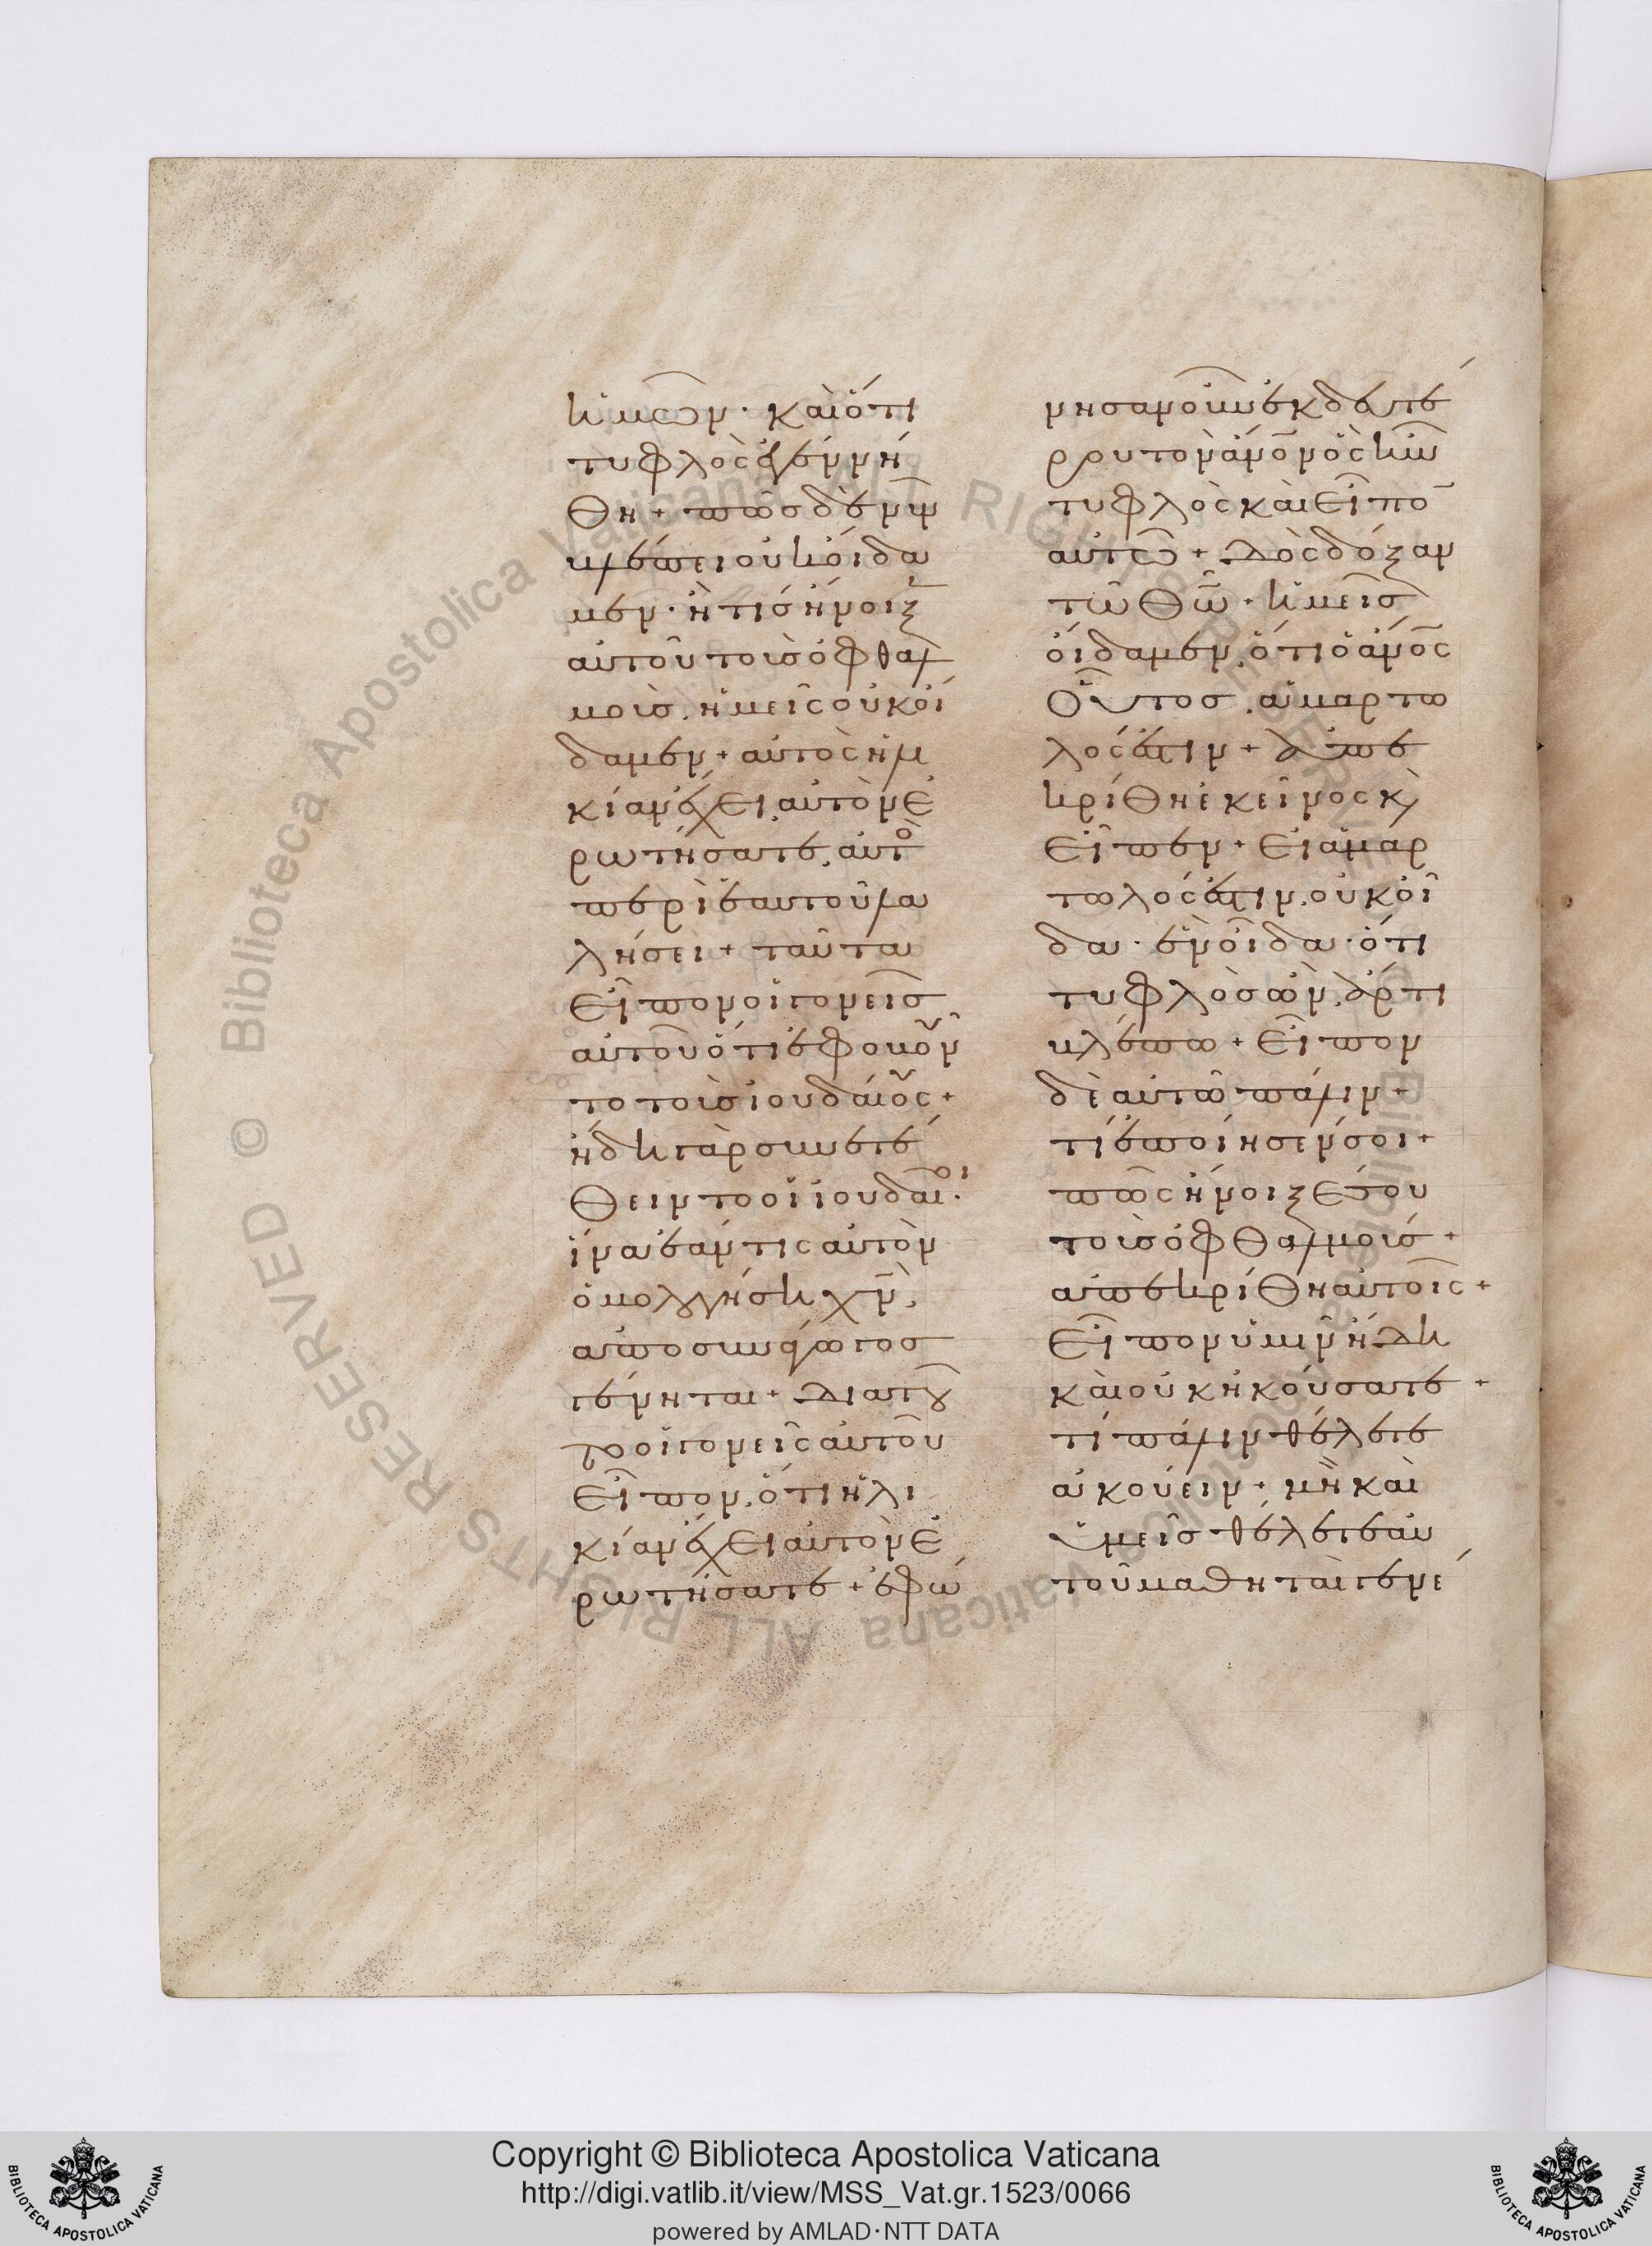 ἡμῶν · καὶ ὅτι
τυφλὸς ἐγεννή
θη + πῶς δὲ νῦν
βλέπει οὐκ οἴδα
μεν · ἢ τίς ἤνοιξ
αὐτοῦ τοὺς ὀφθαλ
μοὺς, ἡμεῖς οὐκ οἴ
δαμεν + αὐτὸς ἡλι
κίαν ἔχει, αὐτὸν ἐ
ρωτήσατε, αὐτὸ
περὶ ἑαυτοῦ λα
λήσει + ταῦτα
εἶπον οἱ γονεῖς
αὐτοῦ ὅτι ἐφοβοῦν
το τοὺς ἰουδαίους +
ἤδη γὰρ συνετέ
θειντο οἱ ἰουδαῖοι ·
ἵνα ἐάν τις αὐτὸν
ὁμολογήσῃ χν̄,
ἀποσυνάγωγος
γένηται + Διατοῦ
το οἱ γονεῖς αὐτοῦ
εἶπον, ὅτι ἡλι
κίαν ἔχει αὐτὸν ἐ
ρωτήσατε + ἐφώ
νησαν οὖν ἐκ δευτέ
ρου τὸν ἄνο̄ν ὃς ἦν
τυφλὸς καὶ εἶπο̄
αὐτῶ + Δὸς δόξαν
τῶ θω̄ · ἡμεῖς
οἴδαμεν, ὅτι ὁ ἄνο̄ς
οὗτος, ἁμαρτω
λός ἐστιν + ἀπε
κρίθη ἐκεῖνος κ̀
εἶπεν · εἰ ἁμαρ
τωλός ἐστιν, οὐκ οἶ
δα · ἓν οἶδα · ὅτι
τυφλὸς ὢν, ἄρτι
βλέπω + εἶπον
δὲ αὐτῶ πάλιν +
τί ἐποίησέν σοι +
πῶς ἤνοιξέ σου
τοὺς ὀφθαλμούς +
ἀπεκρίθη αὐτοῖς +
εἶπον ὑμῖν ἤδη
καὶ οὐκ ἠκούσατε +
τί πάλιν θέλετε
ἀκούειν + μὴ καὶ
ὑμεῖς θέλετε αὐ
τοῦ μαθηταὶ γενέ
Copyright © Biblioteca Apostolica Vaticana
http://digi.vatlib.it/view/MSS_Vat.gr.1523/0066
powered by AMLAD·NTT DATA
BIBLIOTECA APOSTOLICA VATICANA
BIBLIOTECA APOSTOLICA VATICANA
Biblioteca Apostolica Vaticana ALL RIGHTS RESERVED ©
Biblioteca Apostolica Vaticana ALL RIGHTS RESERVED ©